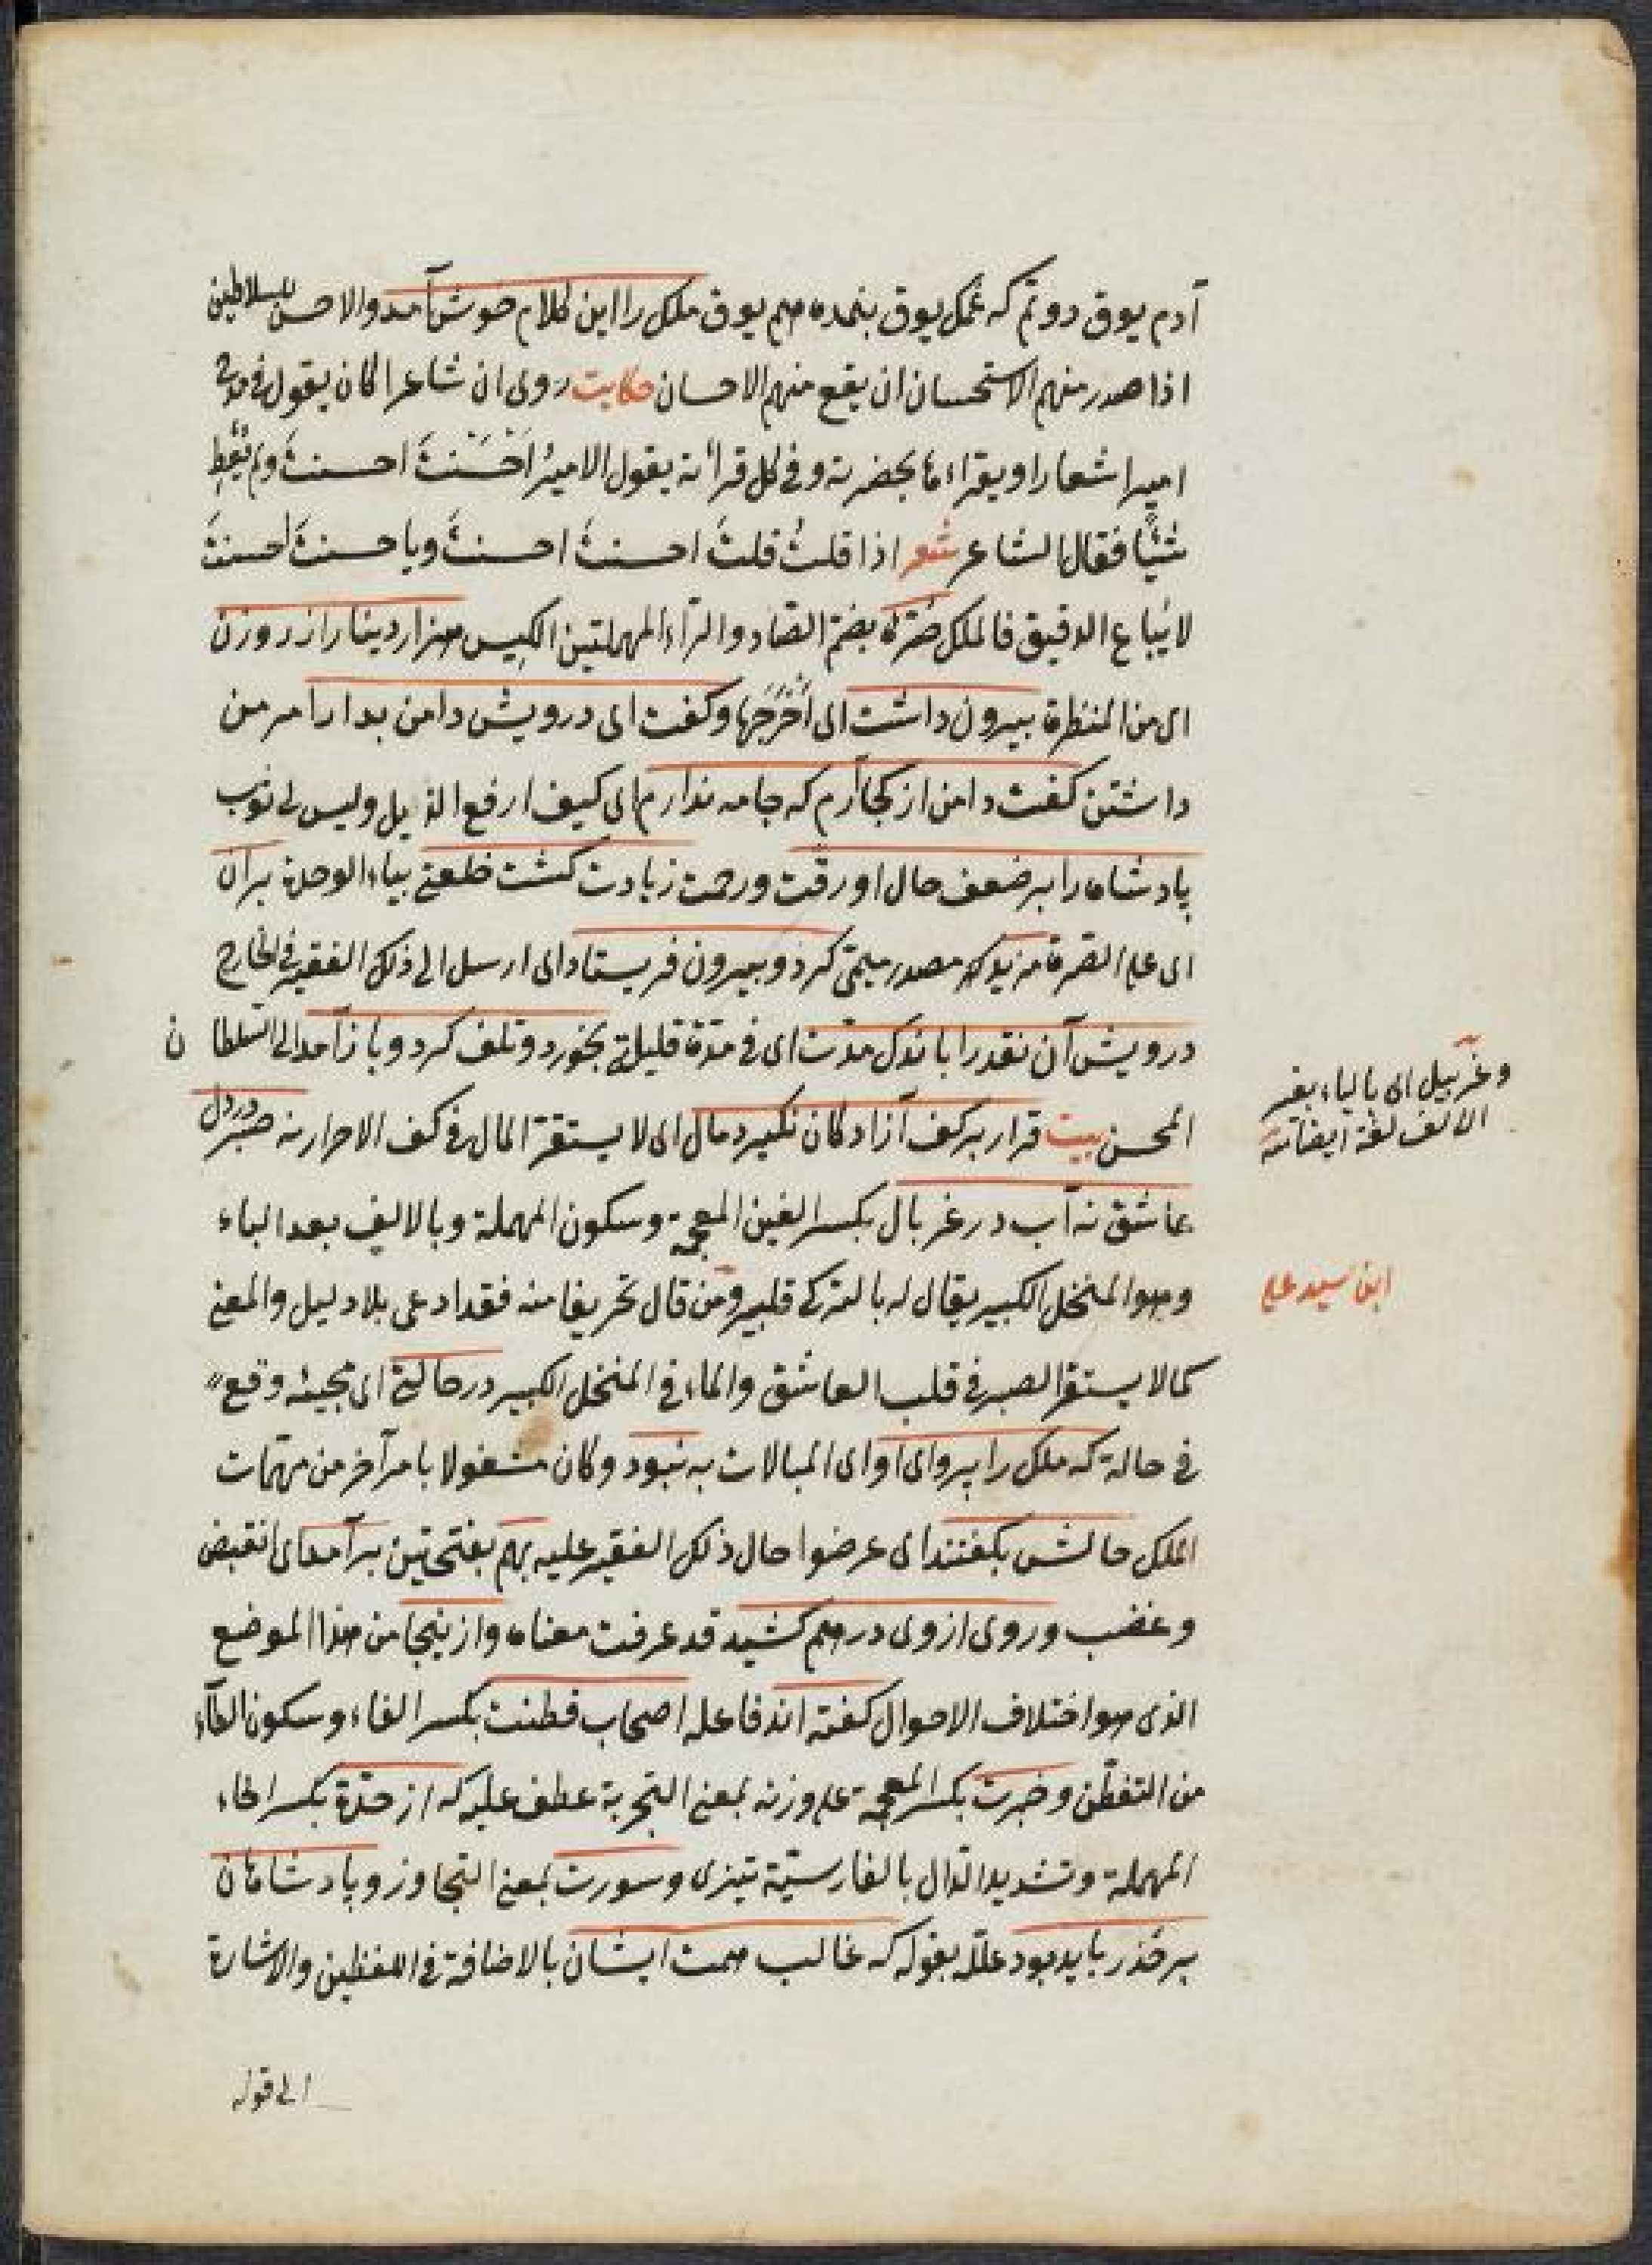 آدم يوق دوتم كه غمك يوق بنمده هم يوق ملك را اين كلام خوش آمد والاحسن للسلاطين
اذا صدر منهم الاستحسان ان يقع منهم الاحسان حكايت روى ان شاعرا كان يقول فى مدح
امير اشعارا ويقراءها بحضرته وفى كل قرائه يقول الاميرُ اَحْسَنْتَ احسنتَ ولم يُعْطِ
شيئًا فقال الشاعر شعر اذا قلتُ قلتَ احسنتَ احسنتَ وباحسنتَ احسنتَ
لايُباع الدقيق فالملك صُرّه بضم الصّاد والرّاء المهملتين الكيس هزار دينار از روزن
اى من المنظرة بيرون داشت اى اَخْرَجَها وكفت اى درويش دامن بدار امر من
داشتن كفت دامن از كجا آرم كه جامه ندارم اى كيف ارفع الذيل وليس لى ثوب
پادشاه را بر ضعف حال او رقّت ورحمت زيادت كشت خلعتى بياء الوحدة بر آن
اى على الصّرة مزيد مصدر ميمىّ كرد وبيرون فرستاد اى ارسل الى ذلك الفقير فى الخارج
درويش آن نقد را باندك مدّت اى فى مدّة قليلة بخورد وتلف كرد وباز آمد الى السّلطان
المحسن بيت قرار بر كف آزادكان نكيرد مال اى لا يستقرّ المال فى كف الاحرار نه صبر در دل
عاشق نه آب در غربال بكسر الغين المعجمة وسكون المهملة وبالالف بعد الباء
وهو المنخل الكبير يقال له بالتركى قلبير ومن قال تحريفا منه فقد ادعى بلا دليل والمعنى
كما لا يستقرّ الصبر فى قلب العاشق والماء فى المنخل الكبير در حالتى اى مجيئه وقع
فى حالة كه ملك را پرواى او اى المبالات به نبود وكان مشغولا بامر آخر من مهمّات
الملك حالش بكفتند اى عرضوا حال ذلك الفقير عليه بهم بفتحتين بر آمد اى انقبض
وغضب وروى از وى درهم كشيد قد عرفت معناه واز ينجا من هذا الموضع
الذى هو اختلاف الاحوال كفته اند فاعله اصحاب فطنت بكسر الفاء وسكون الطاء
من التفطّن وخبرت بكسر المعجمة على وزنه بمعنى التجربة عطف عليه كه از حدّة بكسر الحاء
المهملة وتشديد الدّال بالفارسيّة تيزى وسورت بمعنى التجاوز وپادشاهان
بر حذر بايد بود علله بقوله كه غالب همت ايشان بالاضافة فى اللفظين والاشارة
الى قوله
وغربيل اى بالياء بغير
الالف لغة ايضا
ابن سيد على